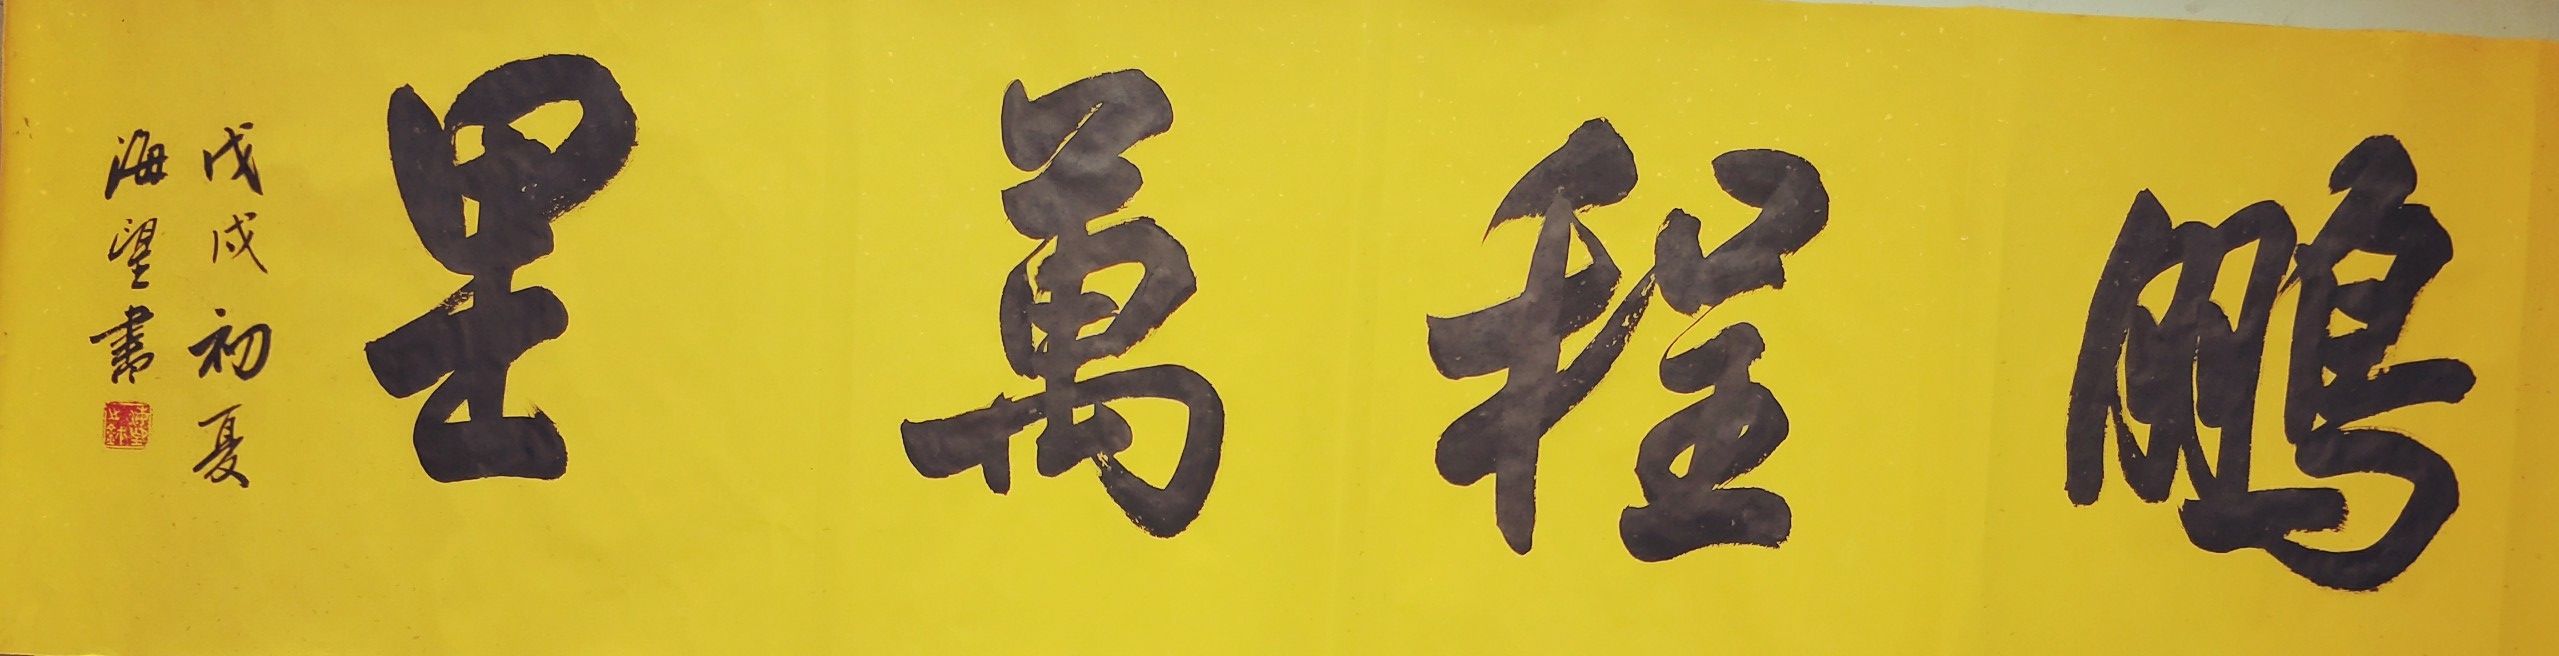 鵬程萬里
戊戌初夏
海望書